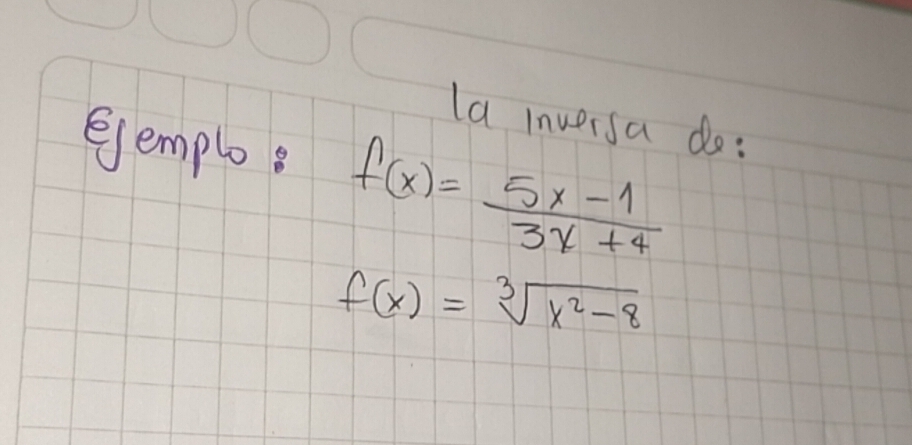 la inversa de:
Ejemplo: f(x) = \frac{5x - 1}{3x + 4}
f(x) = \sqrt[3]{x^2 - 8}